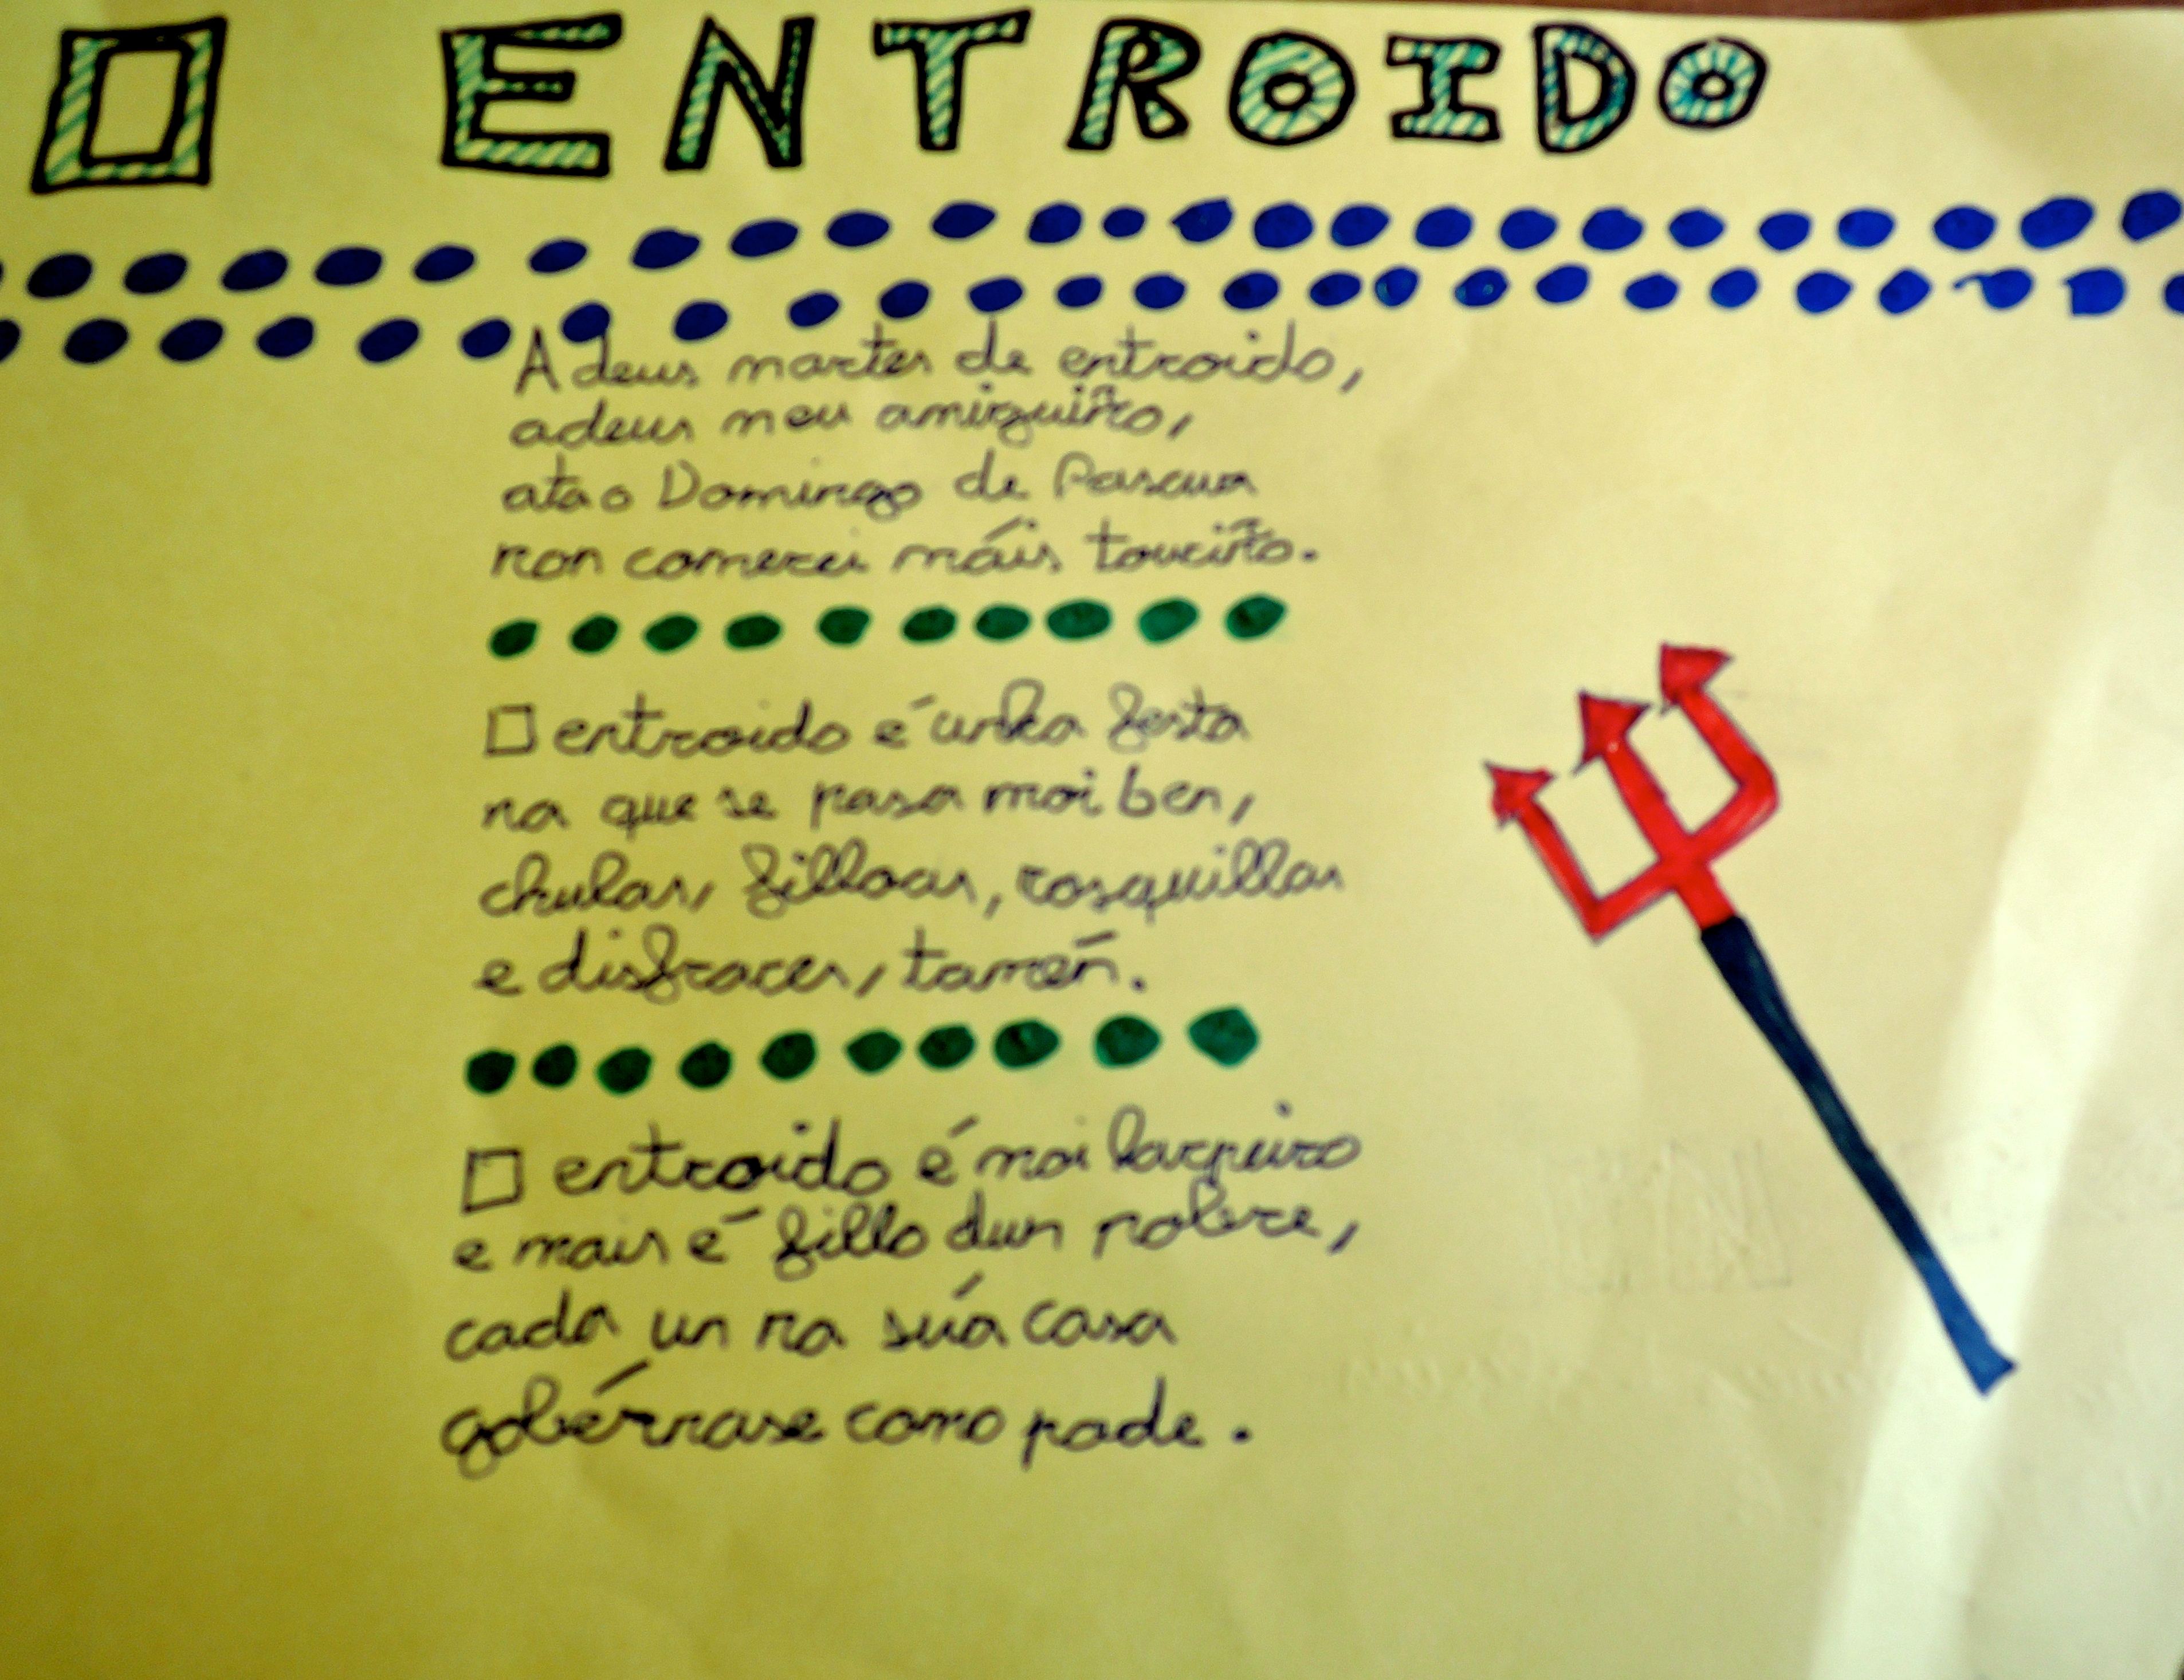 O ENTROIDO
Adeus martes de entroido,
adeus meu amiguiño,
ata o Domingo de Pascua
non comerei máis touciño.
O entroido é unha festa
na que se pasa moi ben,
chulas, filloas, rosquillas
e disfraces, tamén.
O entroido é moi larpeiro
e mais é fillo dun pobre,
cada un na súa casa
gobérnase como pode.